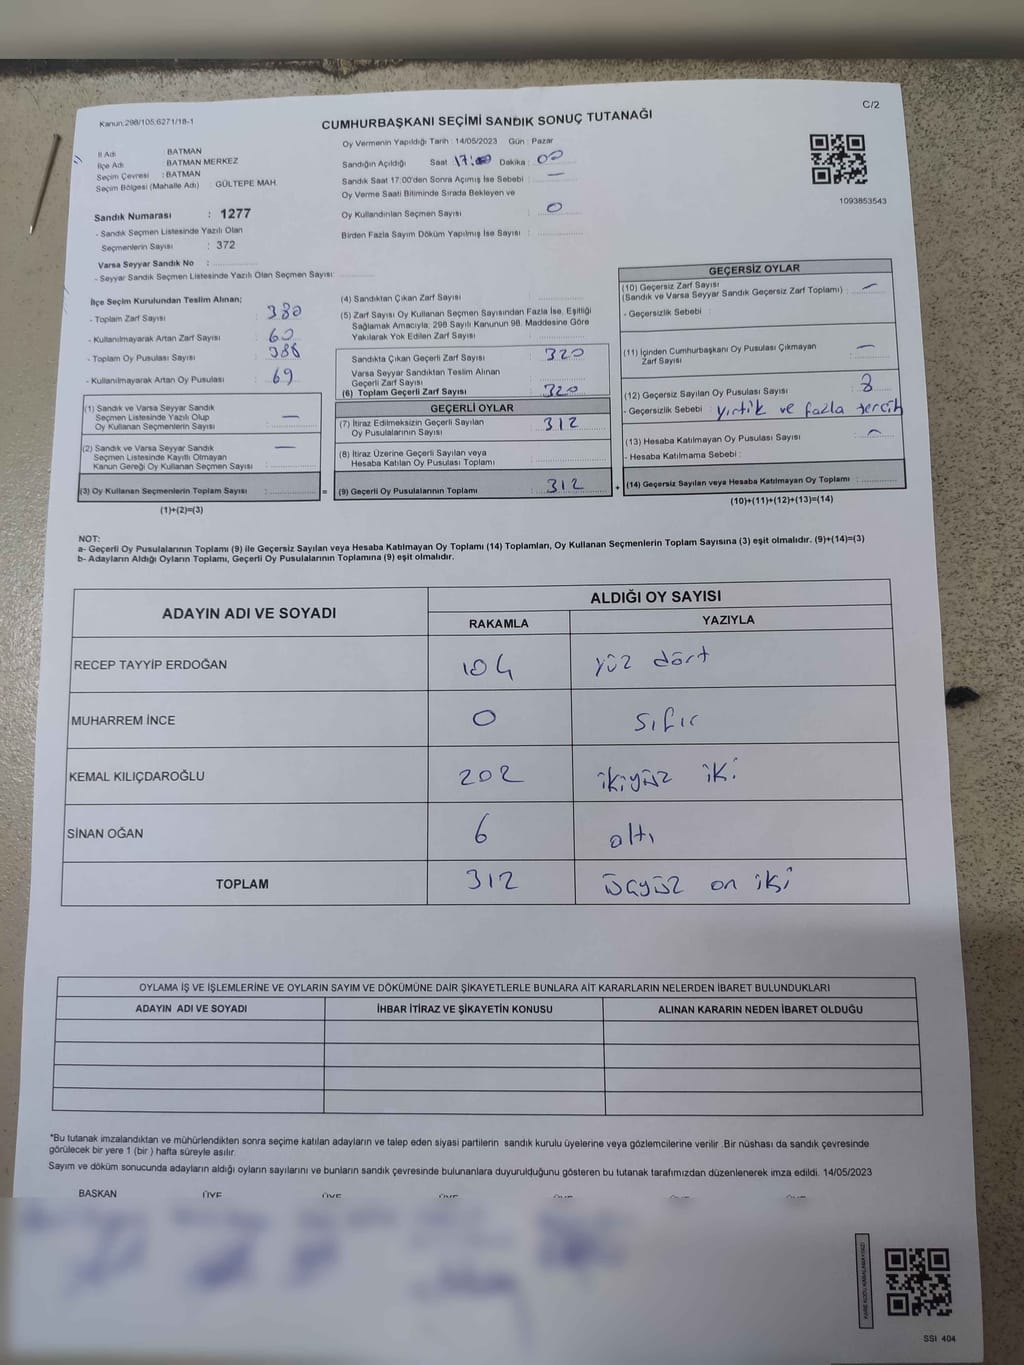 C/2
Kanun.298/105;6271/18-1
CUMHURBAŞKANI SEÇİMİ SANDIK SONUÇ TUTANAĞI
Oy Vermenin Yapıldığı Tarih : 14/05/2023 Gün : Pazar
İl Adı : BATMAN
İlçe Adı : BATMAN MERKEZ
Seçim Çevresi : BATMAN
Seçim Bölgesi (Mahalle Adı) : GÜLTEPE MAH.
Sandığın Açıldığı Saat 17:00 Dakika : 00
Sandık Saat 17:00'den Sonra Açımış İse Sebebi : —
Oy Verme Saati Bitiminde Sırada Bekleyen ve
Oy Kullandırılan Seçmen Sayısı : 0
Birden Fazla Sayım Döküm Yapılmış İse Sayısı :
1093853543
Sandık Numarası : 1277
- Sandık Seçmen Listesinde Yazılı Olan
Seçmenlerin Sayısı : 372
Varsa Seyyar Sandık No :
- Seyyar Sandık Seçmen Listesinde Yazılı Olan Seçmen Sayısı:
İlçe Seçim Kurulundan Teslim Alınan;
- Toplam Zarf Sayısı : 380
- Kullanılmayarak Artan Zarf Sayısı : 60
- Toplam Oy Pusulası Sayısı :
- Kullanılmayarak Artan Oy Pusulası : 69
(1) Sandık ve Varsa Seyyar Sandık
Seçmen Listesinde Yazılı Olup
Oy Kullanan Seçmenlerin Sayısı : —
(2) Sandık ve Varsa Seyyar Sandık
Seçmen Listesinde Kayıtlı Olmayan
Kanun Gereği Oy Kullanan Seçmen Sayısı : —
(3) Oy Kullanan Seçmenlerin Toplam Sayısı : =
(1)+(2)=(3)
(4) Sandıktan Çıkan Zarf Sayısı :
(5) Zarf Sayısı Oy Kullanan Seçmen Sayısından Fazla İse, Eşitliği
Sağlamak Amacıyla; 298 Sayılı Kanunun 98. Maddesine Göre
Yakılarak Yok Edilen Zarf Sayısı :
Sandıkta Çıkan Geçerli Zarf Sayısı : 320
Varsa Seyyar Sandıktan Teslim Alınan
Geçerli Zarf Sayısı :
(6) Toplam Geçerli Zarf Sayısı : 320
GEÇERLİ OYLAR
(7) İtiraz Edilmeksizin Geçerli Sayılan
Oy Pusulalarının Sayısı : 312
(8) İtiraz Üzerine Geçerli Sayılan veya
Hesaba Katılan Oy Pusulası Toplamı :
(9) Geçerli Oy Pusulalarının Toplamı : 312 +
GEÇERSİZ OYLAR
(10) Geçersiz Zarf Sayısı
(Sandık ve Varsa Seyyar Sandık Geçersiz Zarf Toplamı) : —
- Geçersizlik Sebebi :
(11) İçinden Cumhurbaşkanı Oy Pusulası Çıkmayan
Zarf Sayısı : —
(12) Geçersiz Sayılan Oy Pusulası Sayısı : 8
- Geçersizlik Sebebi : yırtık ve fazla tercih
(13) Hesaba Katılmayan Oy Pusulası Sayısı : —
- Hesaba Katılmama Sebebi :
(14) Geçersiz Sayılan veya Hesaba Katılmayan Oy Toplamı :
(10)+(11)+(12)+(13)=(14)
NOT:
a- Geçerli Oy Pusulalarının Toplamı (9) ile Geçersiz Sayılan veya Hesaba Katılmayan Oy Toplamı (14) Toplamları, Oy Kullanan Seçmenlerin Toplam Sayısına (3) eşit olmalıdır. (9)+(14)=(3)
b- Adayların Aldığı Oyların Toplamı, Geçerli Oy Pusulalarının Toplamına (9) eşit olmalıdır.
ADAYIN ADI VE SOYADI
ALDIĞI OY SAYISI
RAKAMLA YAZIYLA
RECEP TAYYİP ERDOĞAN 104 yüz dört
MUHARREM İNCE 0 sıfır
KEMAL KILIÇDAROĞLU 202 ikiyüz iki
SİNAN OĞAN 6 altı
TOPLAM 312 üçyüz on iki
OYLAMA İŞ VE İŞLEMLERİNE VE OYLARIN SAYIM VE DÖKÜMÜNE DAİR ŞİKAYETLERLE BUNLARA AİT KARARLARIN NELERDEN İBARET BULUNDUKLARI
ADAYIN ADI VE SOYADI İHBAR İTİRAZ VE ŞİKAYETİN KONUSU ALINAN KARARIN NEDEN İBARET OLDUĞU
*Bu tutanak imzalandıktan ve mühürlendikten sonra seçime katılan adayların ve talep eden siyasi partilerin sandık kurulu üyelerine veya gözlemcilerine verilir .Bir nüshası da sandık çevresinde
görülecek bir yere 1 (bir ) hafta süreyle asılır.
Sayım ve döküm sonucunda adayların aldığı oyların sayılarını ve bunların sandık çevresinde bulunanlara duyurulduğunu gösteren bu tutanak tarafımızdan düzenlenerek imza edildi. 14/05/2023
BAŞKAN ÜYE ÜYE ÜYE ÜYE
SSI 404